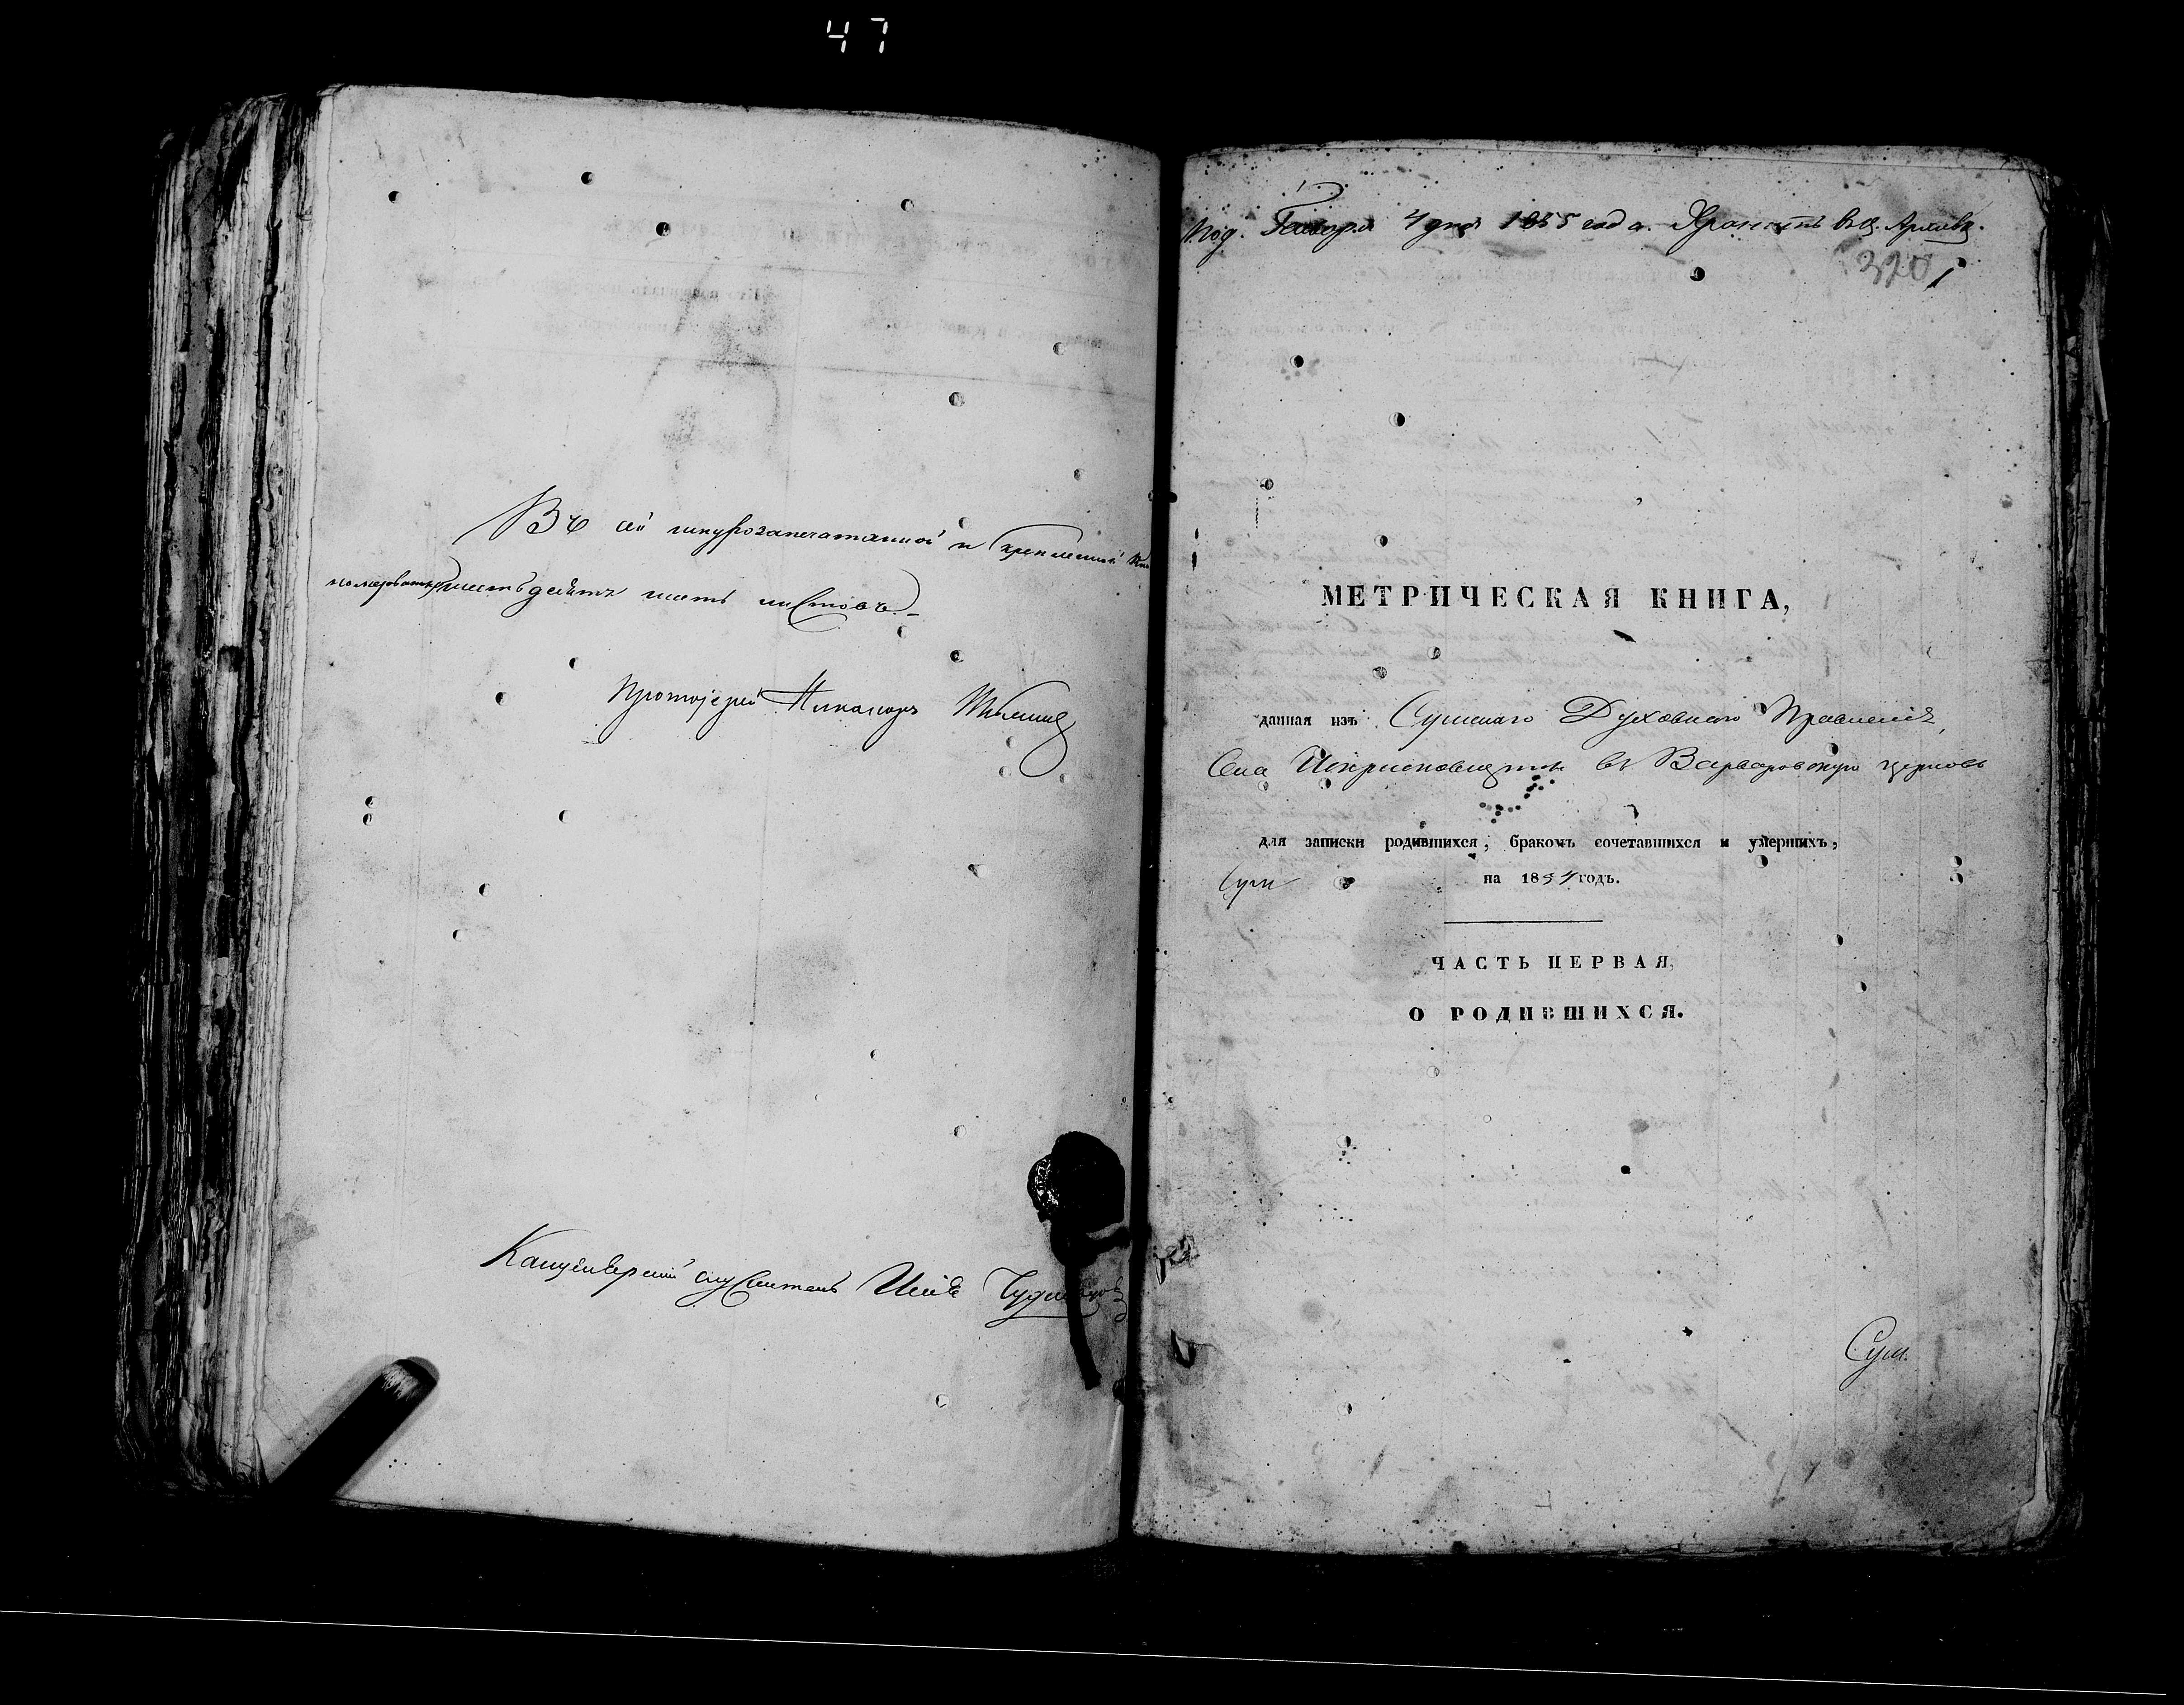 47
Въ сей шнурозапечатанной и скрепленной
шестьдесятъ шесть листовъ
Протоіерей Никаноръ
Канцелярскій служитель
Под. Генваря 4 дня 1855 года. Хранить въ ц. Архивѣ.
320 1
МЕТРИЧЕСКАЯ КНИГА,
данная изъ Сумскаго Духовнаго Правленія,
Села Искрисковщины въ Варваровскую церковь
для записки родившихся, бракомъ сочетавшихся и умершихъ,
на 1854 годъ.
ЧАСТЬ ПЕРВАЯ,
О РОДИВШИХСЯ.
Сум.